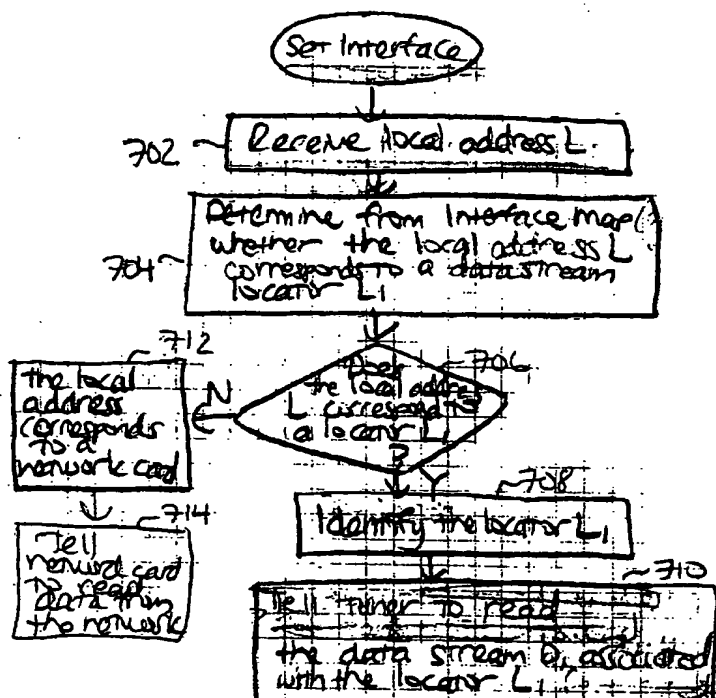 Set Interface
702
Receive local address L.
704
Determine from Interface map
whether the local address L
corresponds to a data stream
locator L1
706
Does
the local address
L correspond to
a locator L1
?
N
Y
712
the local
address
corresponds
to a
network card
714
Tell
network card
to read
data from
the network
708
Identify the locator L1
710
Tell tuner to read
the data stream D1, associated
with the locator L1